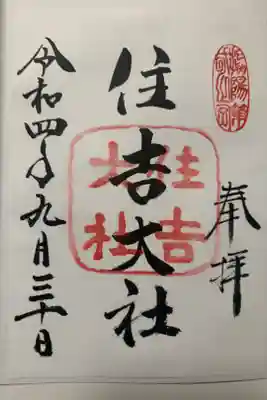 奉拝
住吉大社
住吉
大社
令和四年九月三十日